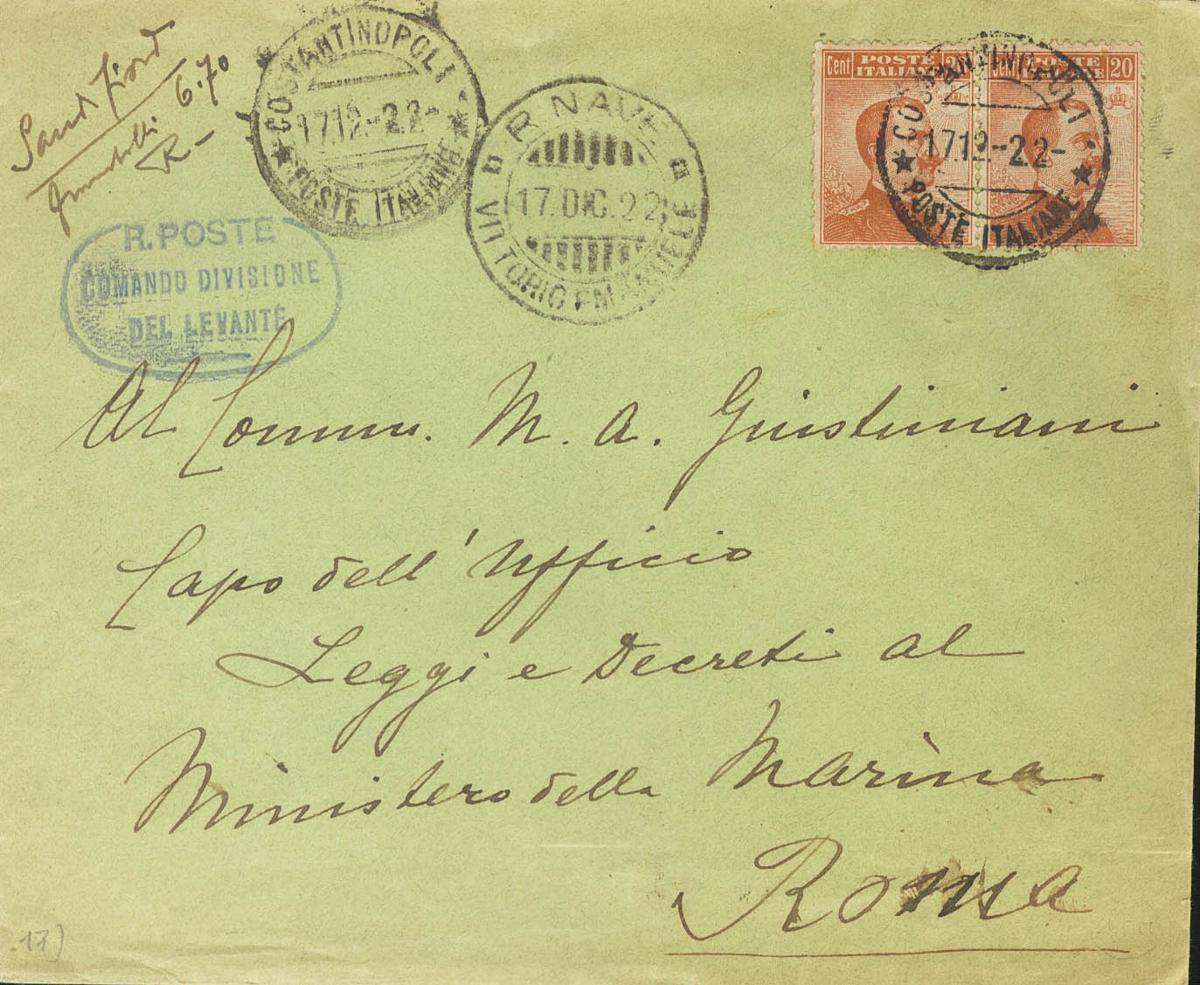 6.70
R-
COSTANTINOPOLI
17.12.-22-
POSTE ITALIANE
R. NAVE
17. DIC. 22
VITTORIO EMANUELE
Cent POSTE ITALIANE 20
Cent POSTE ITALIANE 20
COSTANTINOPOLI
17.12.-22-
POSTE ITALIANE
R. POSTE
COMANDO DIVISIONE
DEL LEVANTE
Al Comm. M. A. Giustiniani
Capo dell'Ufficio
Leggi e Decreti al
Ministero della Marina
Roma
17)